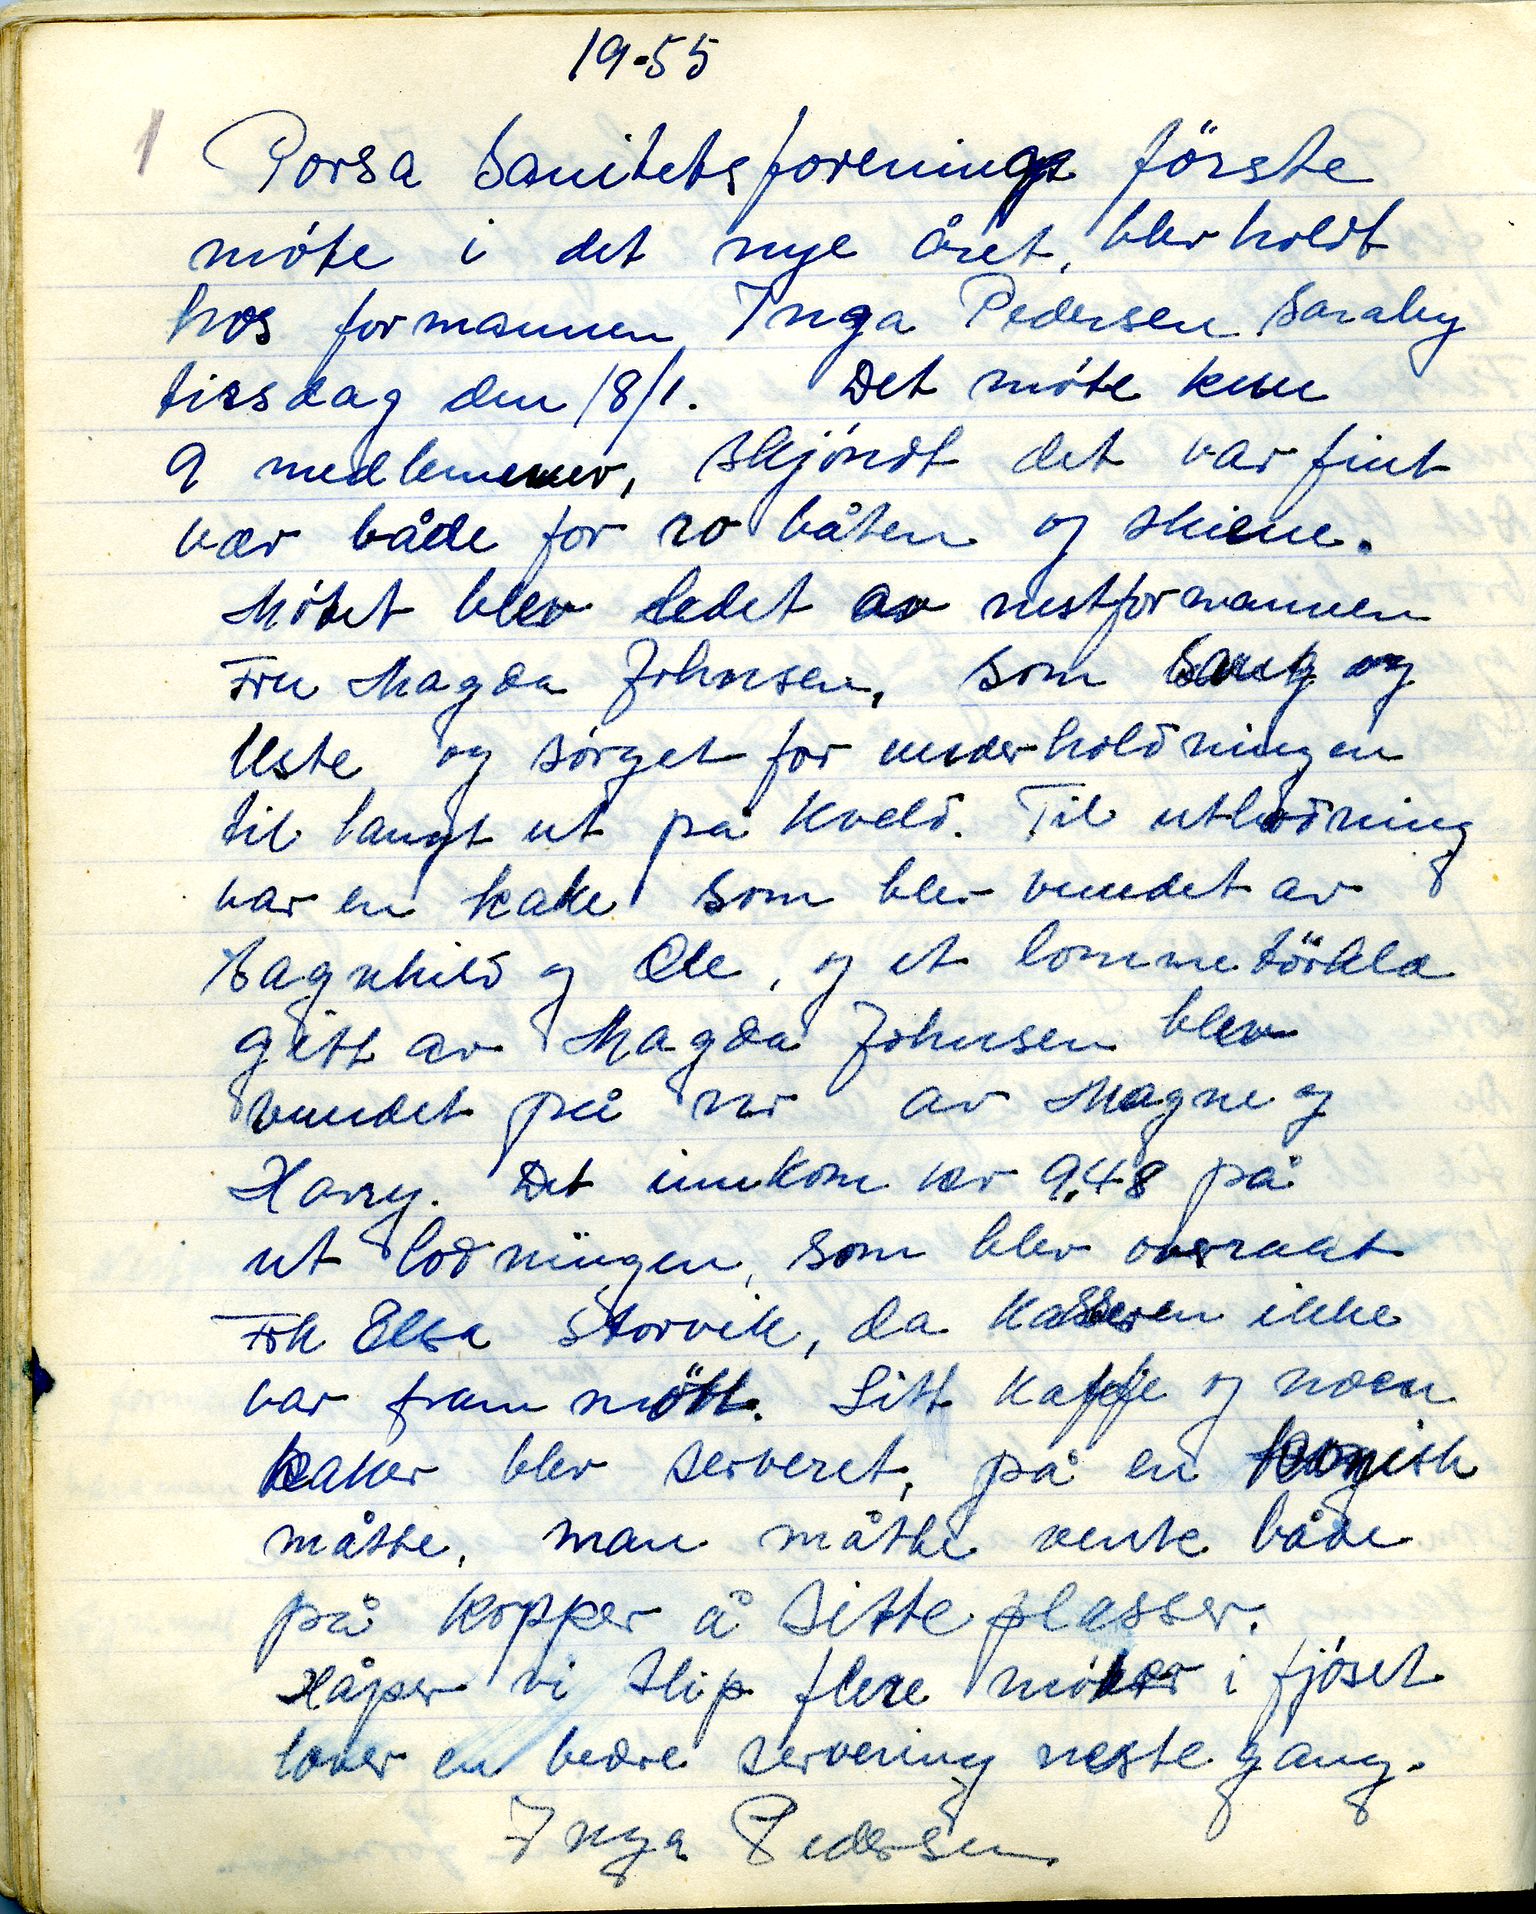 19-55
1
Porsa Sanitetsforening første
møte i det nye året, blev holdt
hos formannen Inga Pedersen Saraby
tirsdag den 18/1. Det møte kun
9 medlemmer, skjøndt det var fint
vær både for ro båten og skiene.
Møtet blev ledet av nestformannen
Fru Magda Johnsen, som sang og
leste og sørget for underholdningen
til langt ut på kveld. Til utlodning
var en kake som blev vundet av
Ragnhild og Ole, og et lommetörkla
gitt av Magda Johnsen blev
vundet på nr av Magne og
Harry. Det innkom kr 9,48 på
ut lodningen, som blev overrakt
Frk Elsa Storvik, da kasseren ikke
var fram møtt. Litt kaffe og noen
kaker blev serveret, på en komisk
måtte, man måtte vente både
på kopper å sitte plasser.
Håper vi slip flere møter i fjøset
lover en bedre servering neste gang.
Inga Pedersen